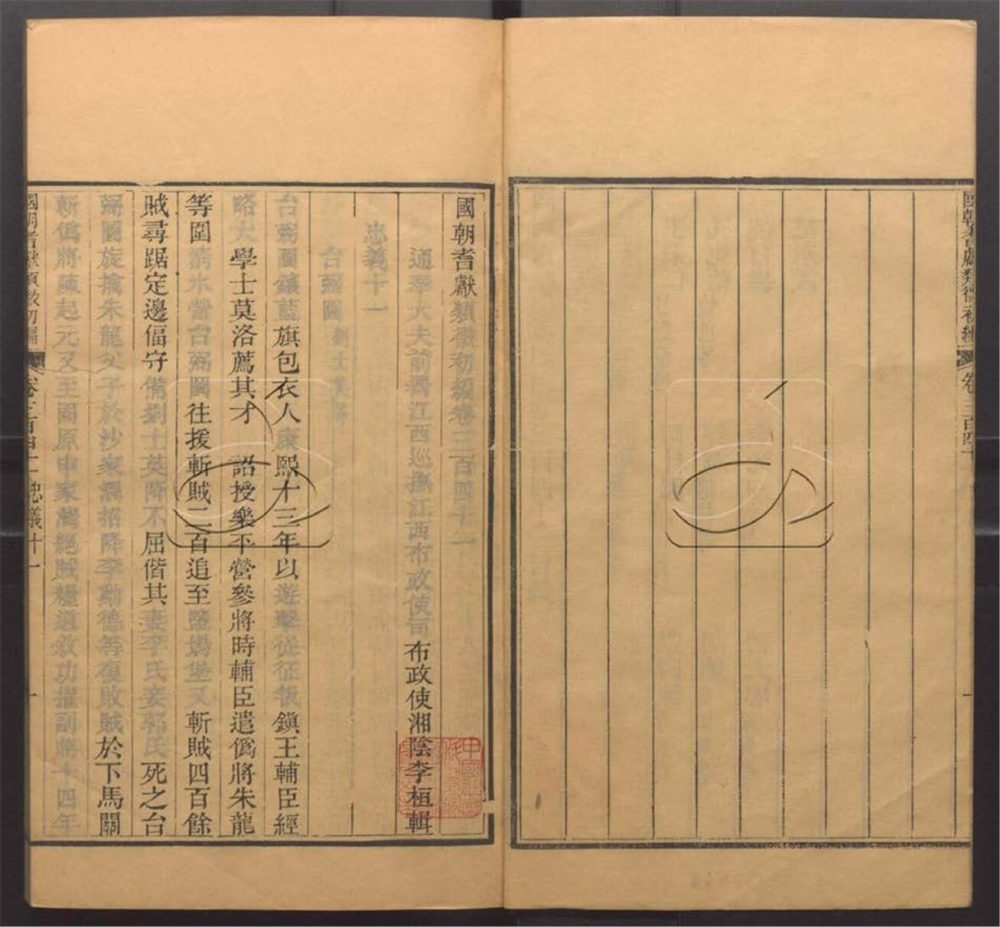 國朝耆獻類徵初編 卷三百四十
國朝耆獻類徵初編卷三百四十一
通奉大夫前署江西巡撫江西布政使司布政使湘陰李桓輯
忠義十一
台弼圖 劉士英
台弼圖鑲藍旗包衣人康熙十三年以遊擊從征叛鎮王輔臣經
略大學士莫洛薦其才 詔授樂平營參將時輔臣遣僞將朱龍
等圍清水營台弼圖往援斬賊二百追至鹽場堡又斬賊四百餘
賊尋踞定邊偪守備劉士英降不屈偕其妻李氏妾郭氏死之台
弼圖旋擒朱龍父子於沙家澗招降李勳德等復敗賊於下馬關
斬僞將陳起元又至固原申家灣絕賊糧道敘功擢副將十四年
國朝耆獻類徵初編 卷三百四十一忠義十一 一